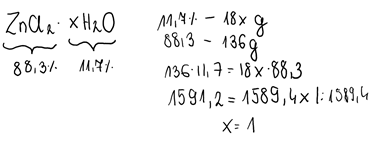 ZnCl₂· xH₂O
88,3% 11,7%
11,7% – 18x g
88,3 – 136g
136·11,7 = 18x·88,3
1591,2 = 1589,4x |:1589,4
x = 1